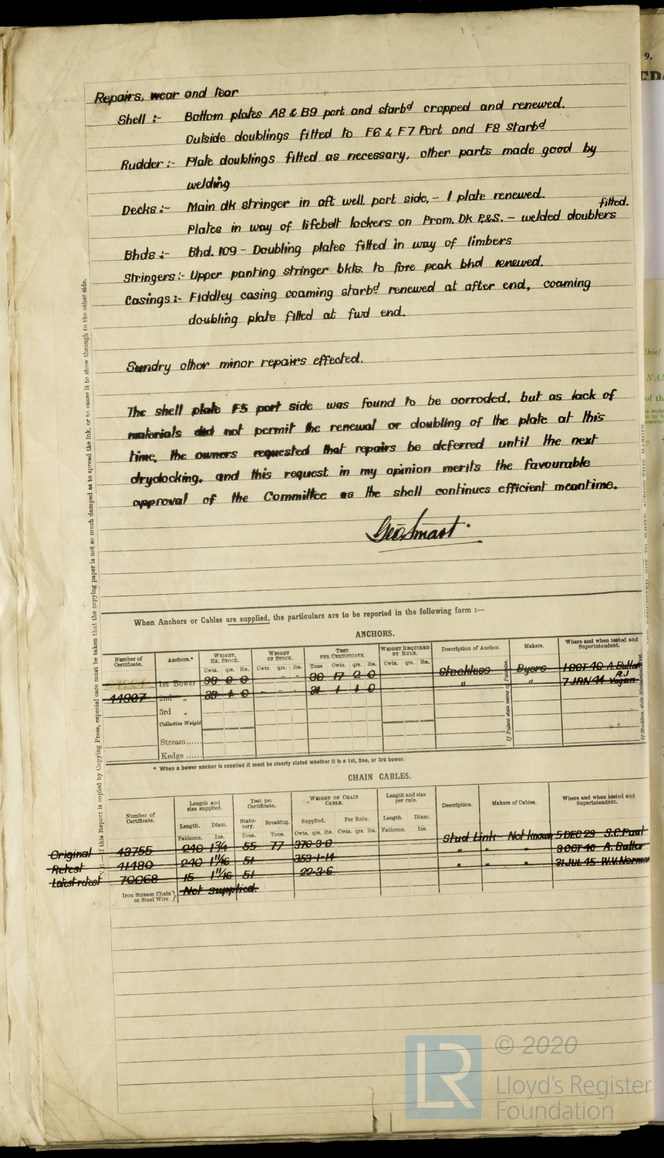 Repairs, wear and tear
Shell :- Bottom plates A8 & B9 port and starbd cropped and renewed.
Outside doublings fitted to F6 & F7 Port and F8 Starbd
Rudder :- Plate doublings fitted as necessary, other parts made good by
welding
Decks :- Main dk stringer in aft well, port side, - 1 plate renewed.
Plates in way of lifebelt lockers on Prom. Dk P.&S. - welded doublers fitted.
Bhds :- Bhd. 109 - Doubling plates fitted in way of limbers
Stringers :- Upper panting stringer bkts. to fore peak bhd renewed.
Casings :- Fiddley casing coaming starbd renewed at after end, coaming
doubling plate fitted at fwd end.
Sundry other minor repairs effected.
The shell plate F5 port side was found to be corroded, but as lack of
materials did not permit the renewal or doubling of the plate at this
time, the owners requested that repairs be deferred until the next
drydocking, and this request in my opinion merits the favourable
approval of the Committee as the shell continues efficient meantime.
Geo Smart.
When Anchors or Cables are supplied, the particulars are to be reported in the following form :—
ANCHORS.
Number of Certificate. Anchors.* Weight, Ex. Stock. Weight of Stock. Test per Certificate. Weight Required by Rule. Description of Anchor. Makers. Where and when tested and Superintendent.
Cwts. qrs. lbs. Cwts. qrs. lbs. Tons cwts. qrs. lbs. Cwts. qrs. lbs.
1st Bower Stockless Byers 1 OCT 40 A. Butler
44987 2nd " 39 1 0 31 1 1 0 " " 7 JAN 44 R.J Vogan
3rd "
Collective Weight
Stream......
Kedge......
* When a bower anchor is supplied it must be clearly stated whether it is a 1st, 2nd, or 3rd bower.
CHAIN CABLES.
Number of Certificate. Length and size supplied. Test per Certificate. Weight of Chain Cable. Length and size per rule. Description. Makers of Cables. Where and when tested and Superintendent.
Length. Diam. Statutory. Breaking. Supplied. Per Rule. Length. Diam.
Fathoms. Ins. Tons. Tons. Cwts. qrs. lbs. Cwts. qrs. lbs. Fathoms. Ins.
Original 43755 240 1¾ 55 77 370-3-0 Stud Link Not known 5 DEC 29 S.C. Paul
Retest 41480 240 1 11/16 51 353-1-14 " " 3 OCT 40 A. Butler
Latest retest 70068 15 1 11/16 51 22-3-6 " " 31 JUL 45 W.V. Norman
Iron Stream Chain or Steel Wire } Not supplied.
© 2020
LR
Lloyd's Register
Foundation